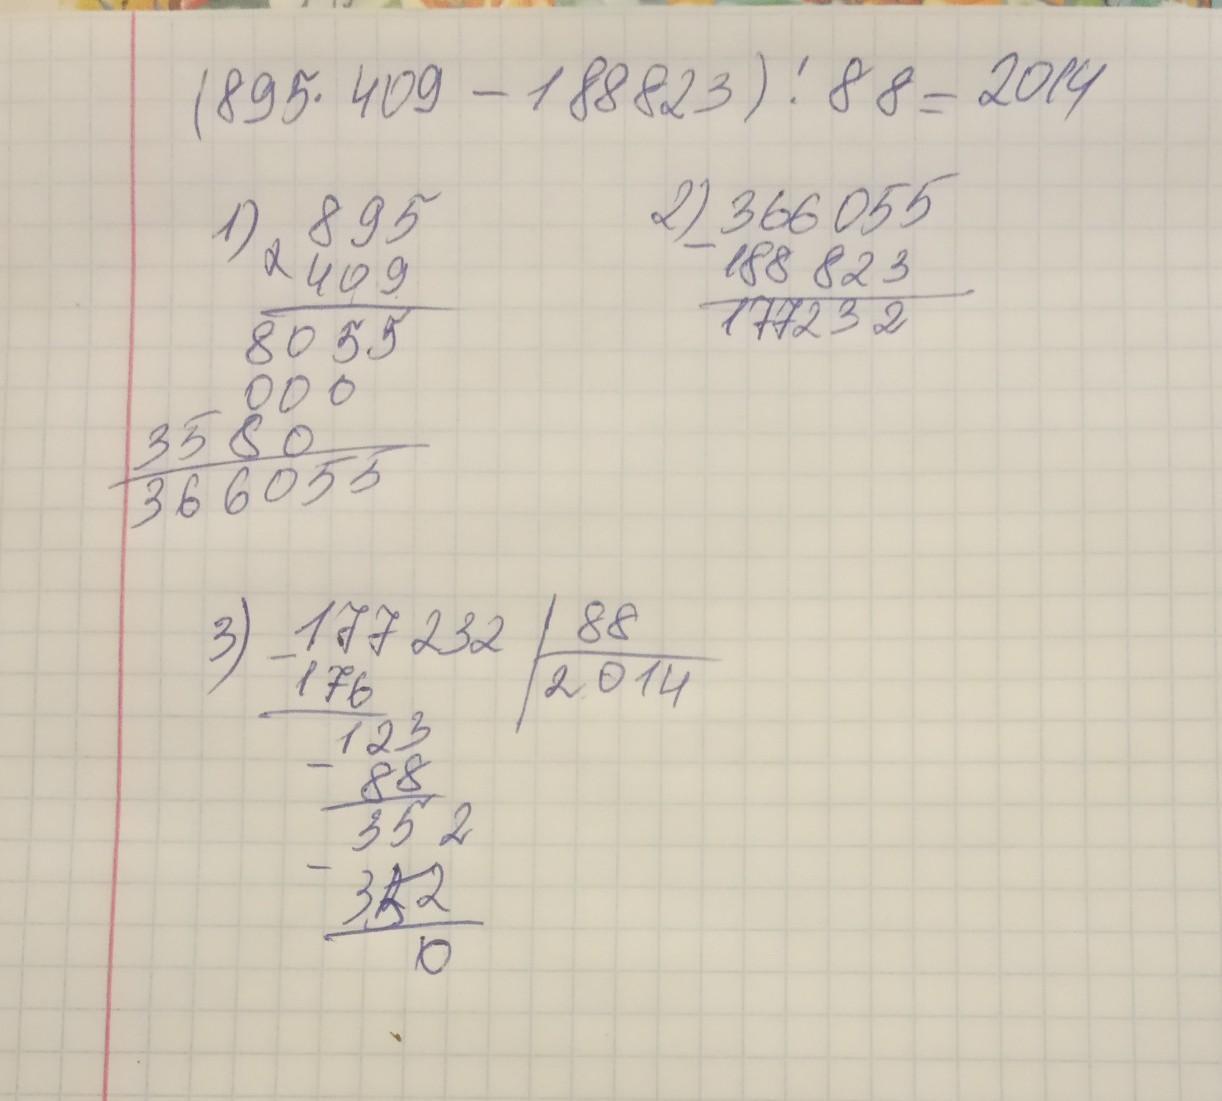 (895·409-188823):88=2014
1) 895
x 409
8055
000
3580
366055
2) 366055
- 188823
177232
3) - 177232 | 88
176 2014
123
- 88
352
- 352
0